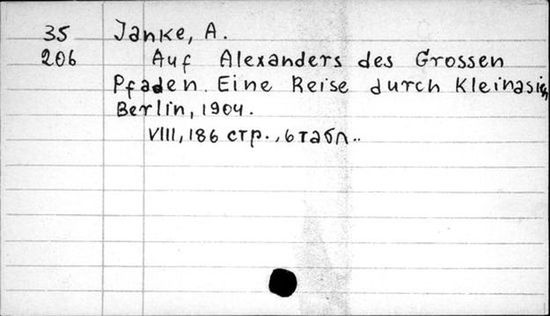 35 Janke, A.
206 Auf Alexanders des Grossen
Pfaden. Eine Reise durch Kleinasien
Berlin, 1904.
VIII, 186 стр., 6 табл..